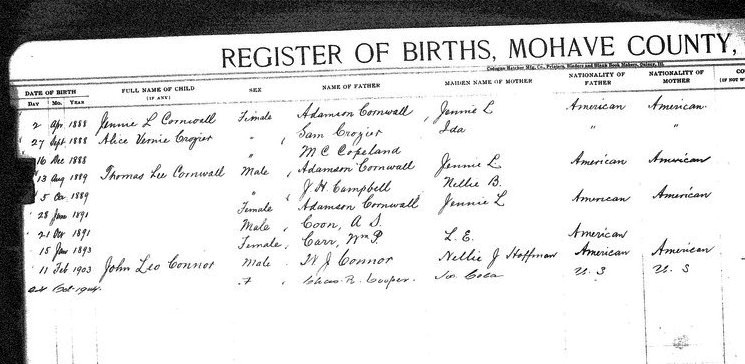 REGISTER OF BIRTHS, MOHAVE COUNTY,
DATE OF BIRTH FULL NAME OF CHILD SEX NAME OF FATHER MAIDEN NAME OF MOTHER NATIONALITY OF FATHER NATIONALITY OF MOTHER
DAY MO. YEAR (IF ANY)
2 Apr 1888 Jennie L Cornwall Female Adamson Cornwall Jennie L American American
27 Sept 1888 Alice Vernie Crozier " Sam Crozier Ida " "
16 Dec 1888 " M C Copeland
13 Aug 1889 Thomas Lee Cornwall Male Adamson Cornwall Jennie L. American American
5 Oc. 1889 " J. H. Campbell Nellie B.
28 1891 Female Adamson Cornwall Jennie L American American
21 Oct 1891 Male Coon, A S.
15 1893 Female Carr, Wm P. L. E. American
11 Feb 1903 John Leo Connor Male W J Connor Nellie J Hoffman American American
Cooper. U. S U. S